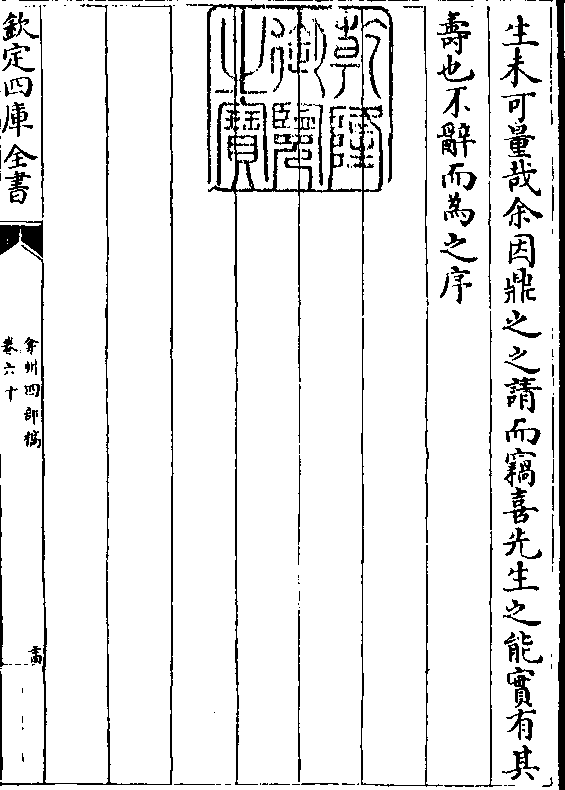 生未可量哉余因鼎之之請而竊喜先生之能實有其
壽也不辭而為之序
乾隆
御覽
之寶
欽定四庫全書
弇州四部稿
卷六十